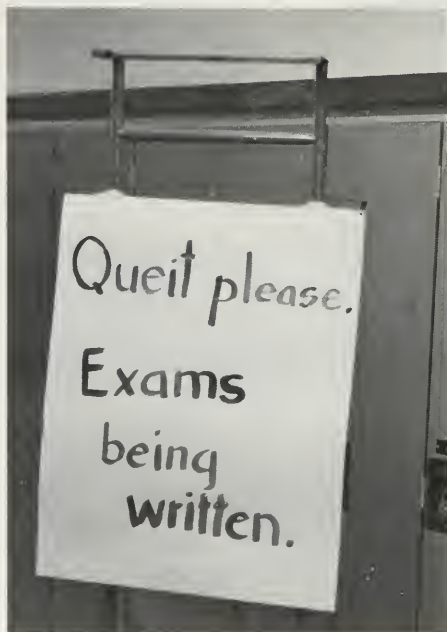 Queit please.
Exams
being
written.